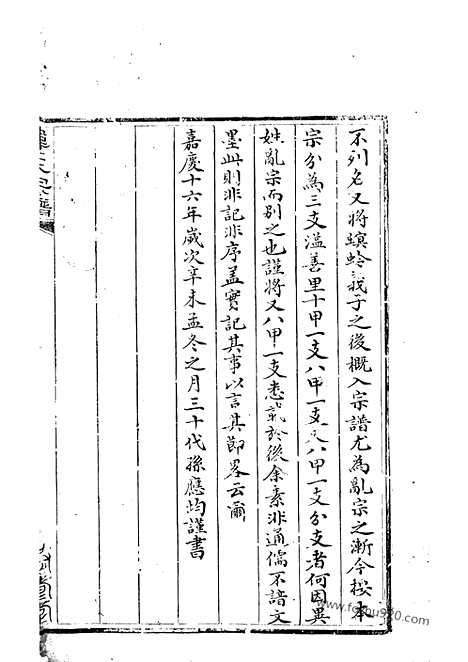 不列名又將螟蛉義子之後概入宗譜尤為亂宗之漸今按本
宗分為三支溫善里十甲一支八甲一支又八甲一支分支者何因異
姓亂宗而別之也謹將又八甲一支悉載於後余素非通儒不諳文
墨此則非記非序蓋實記其事以言其節畧云爾
嘉慶十六年歲次辛未孟冬之月三十代孫應均謹書
www.fopu920.com